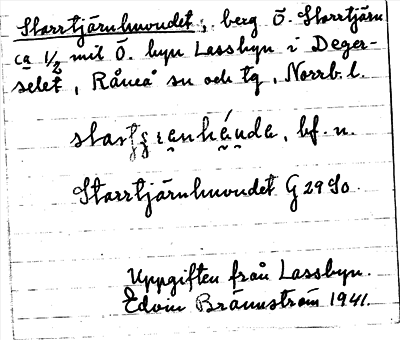 Starrtjärnhuvudet, berg Ö. Starrtjärn
ca 1/2 mil Ö. byn Lassbyn i Deger-
selet, Råneå sn och tg, Norrb. l.
bf. n.
Starrtjärnhuvudet G 29 So.
Uppgiften från Lassbyn.
Edvin Brännström 1941.